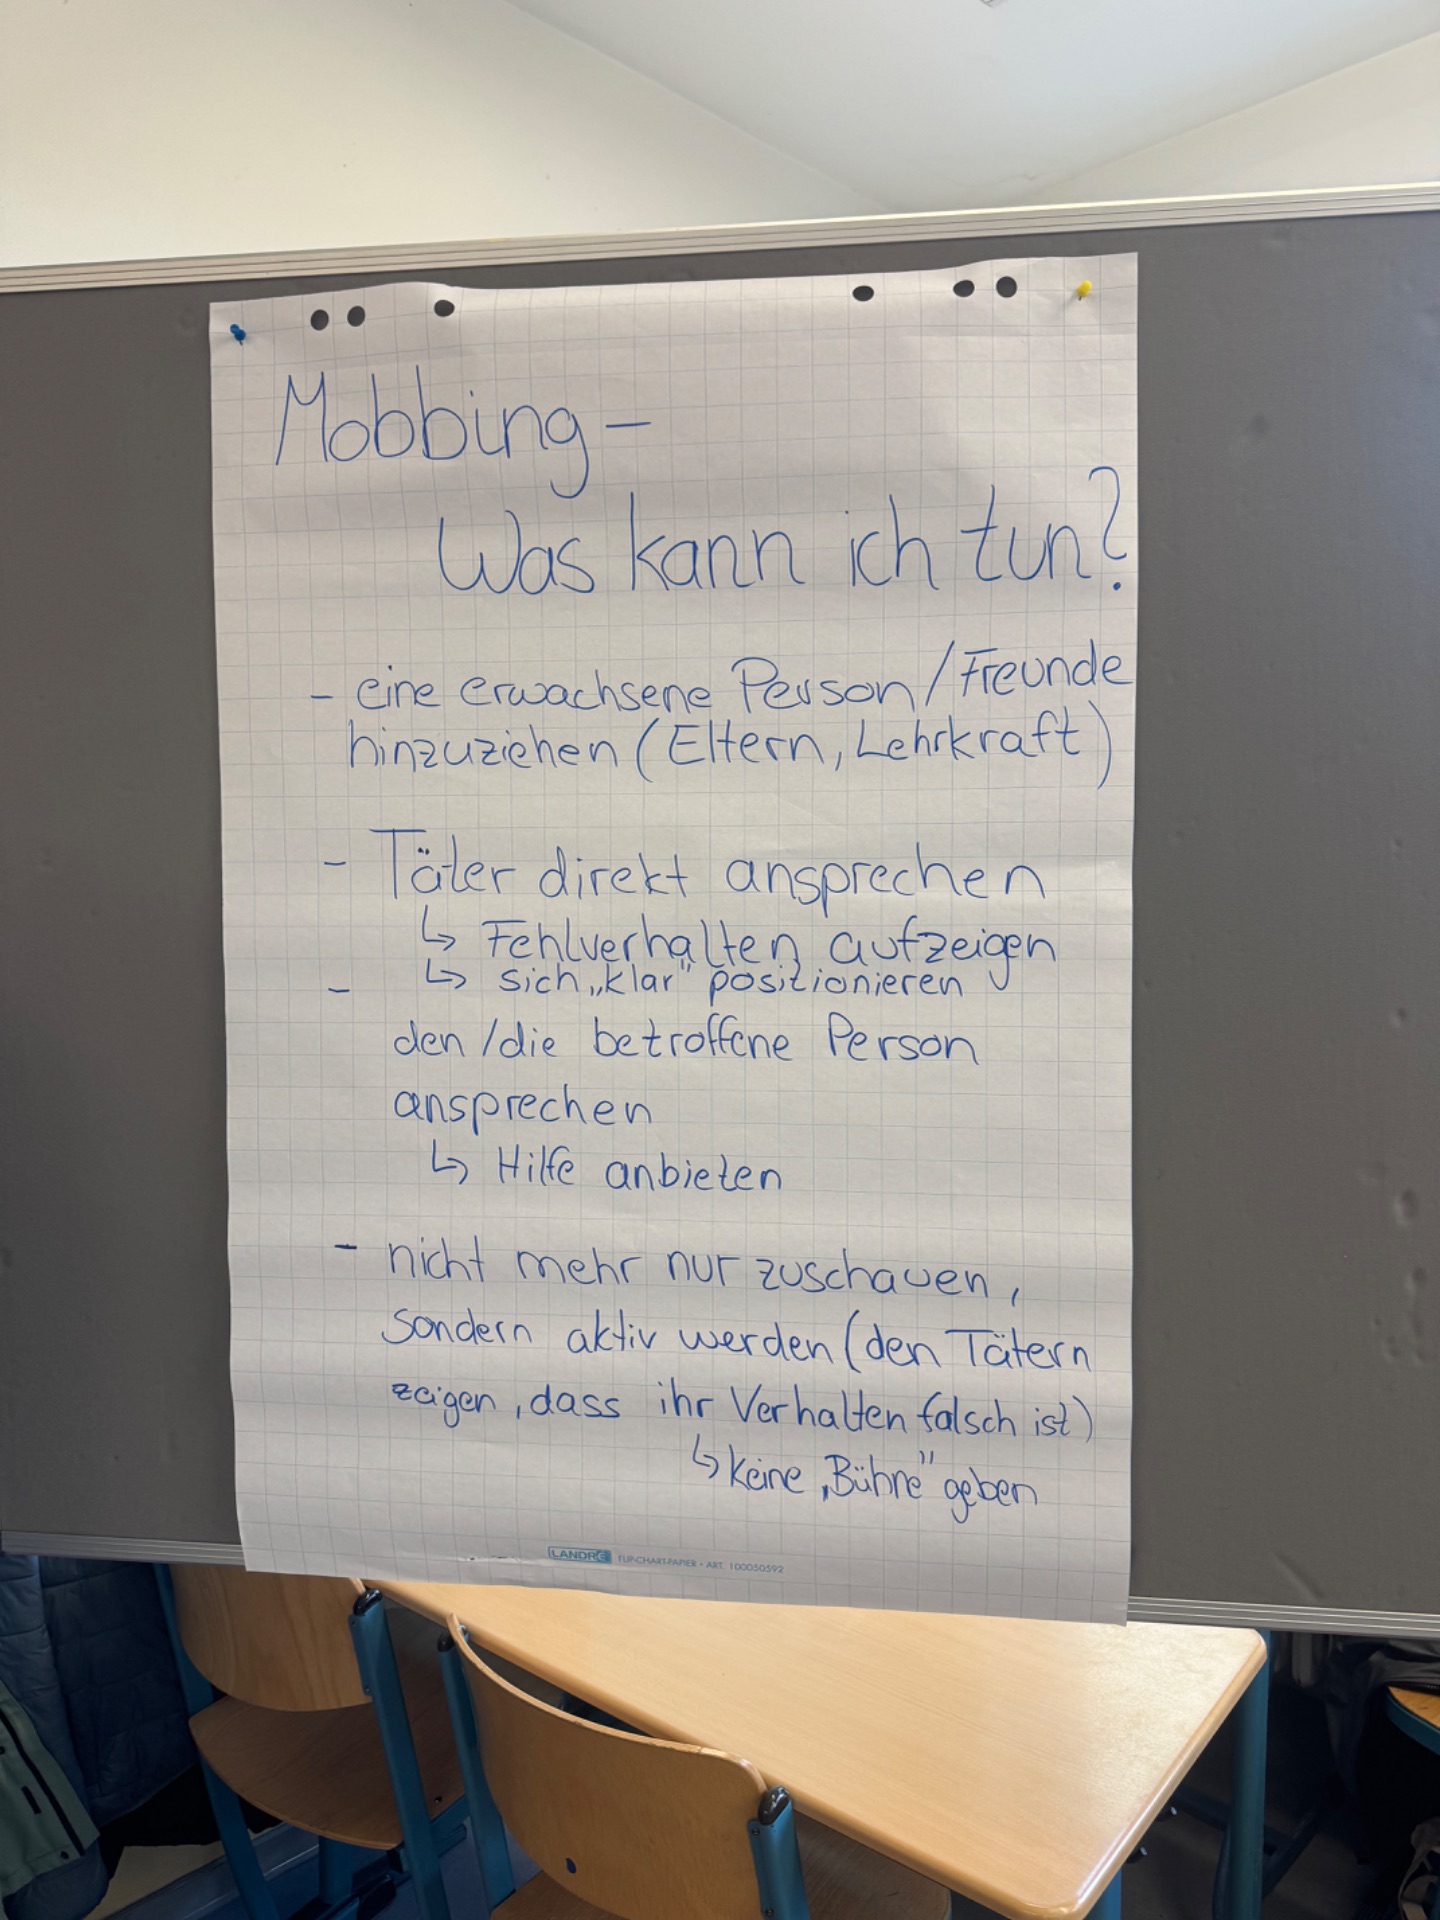 Mobbing –
Was kann ich tun?
- eine erwachsene Person/Freunde
hinzuziehen (Eltern, Lehrkraft)
- Täter direkt ansprechen
↳ Fehlverhalten aufzeigen
↳ sich „klar" positionieren
-
den/die betroffene Person
ansprechen
↳ Hilfe anbieten
- nicht mehr nur zuschauen,
sondern aktiv werden (den Tätern
zeigen, dass ihr Verhalten falsch ist)
↳ keine „Bühne" geben
LANDRÉ FLIP-CHART-PAPIER • ART. 100050592